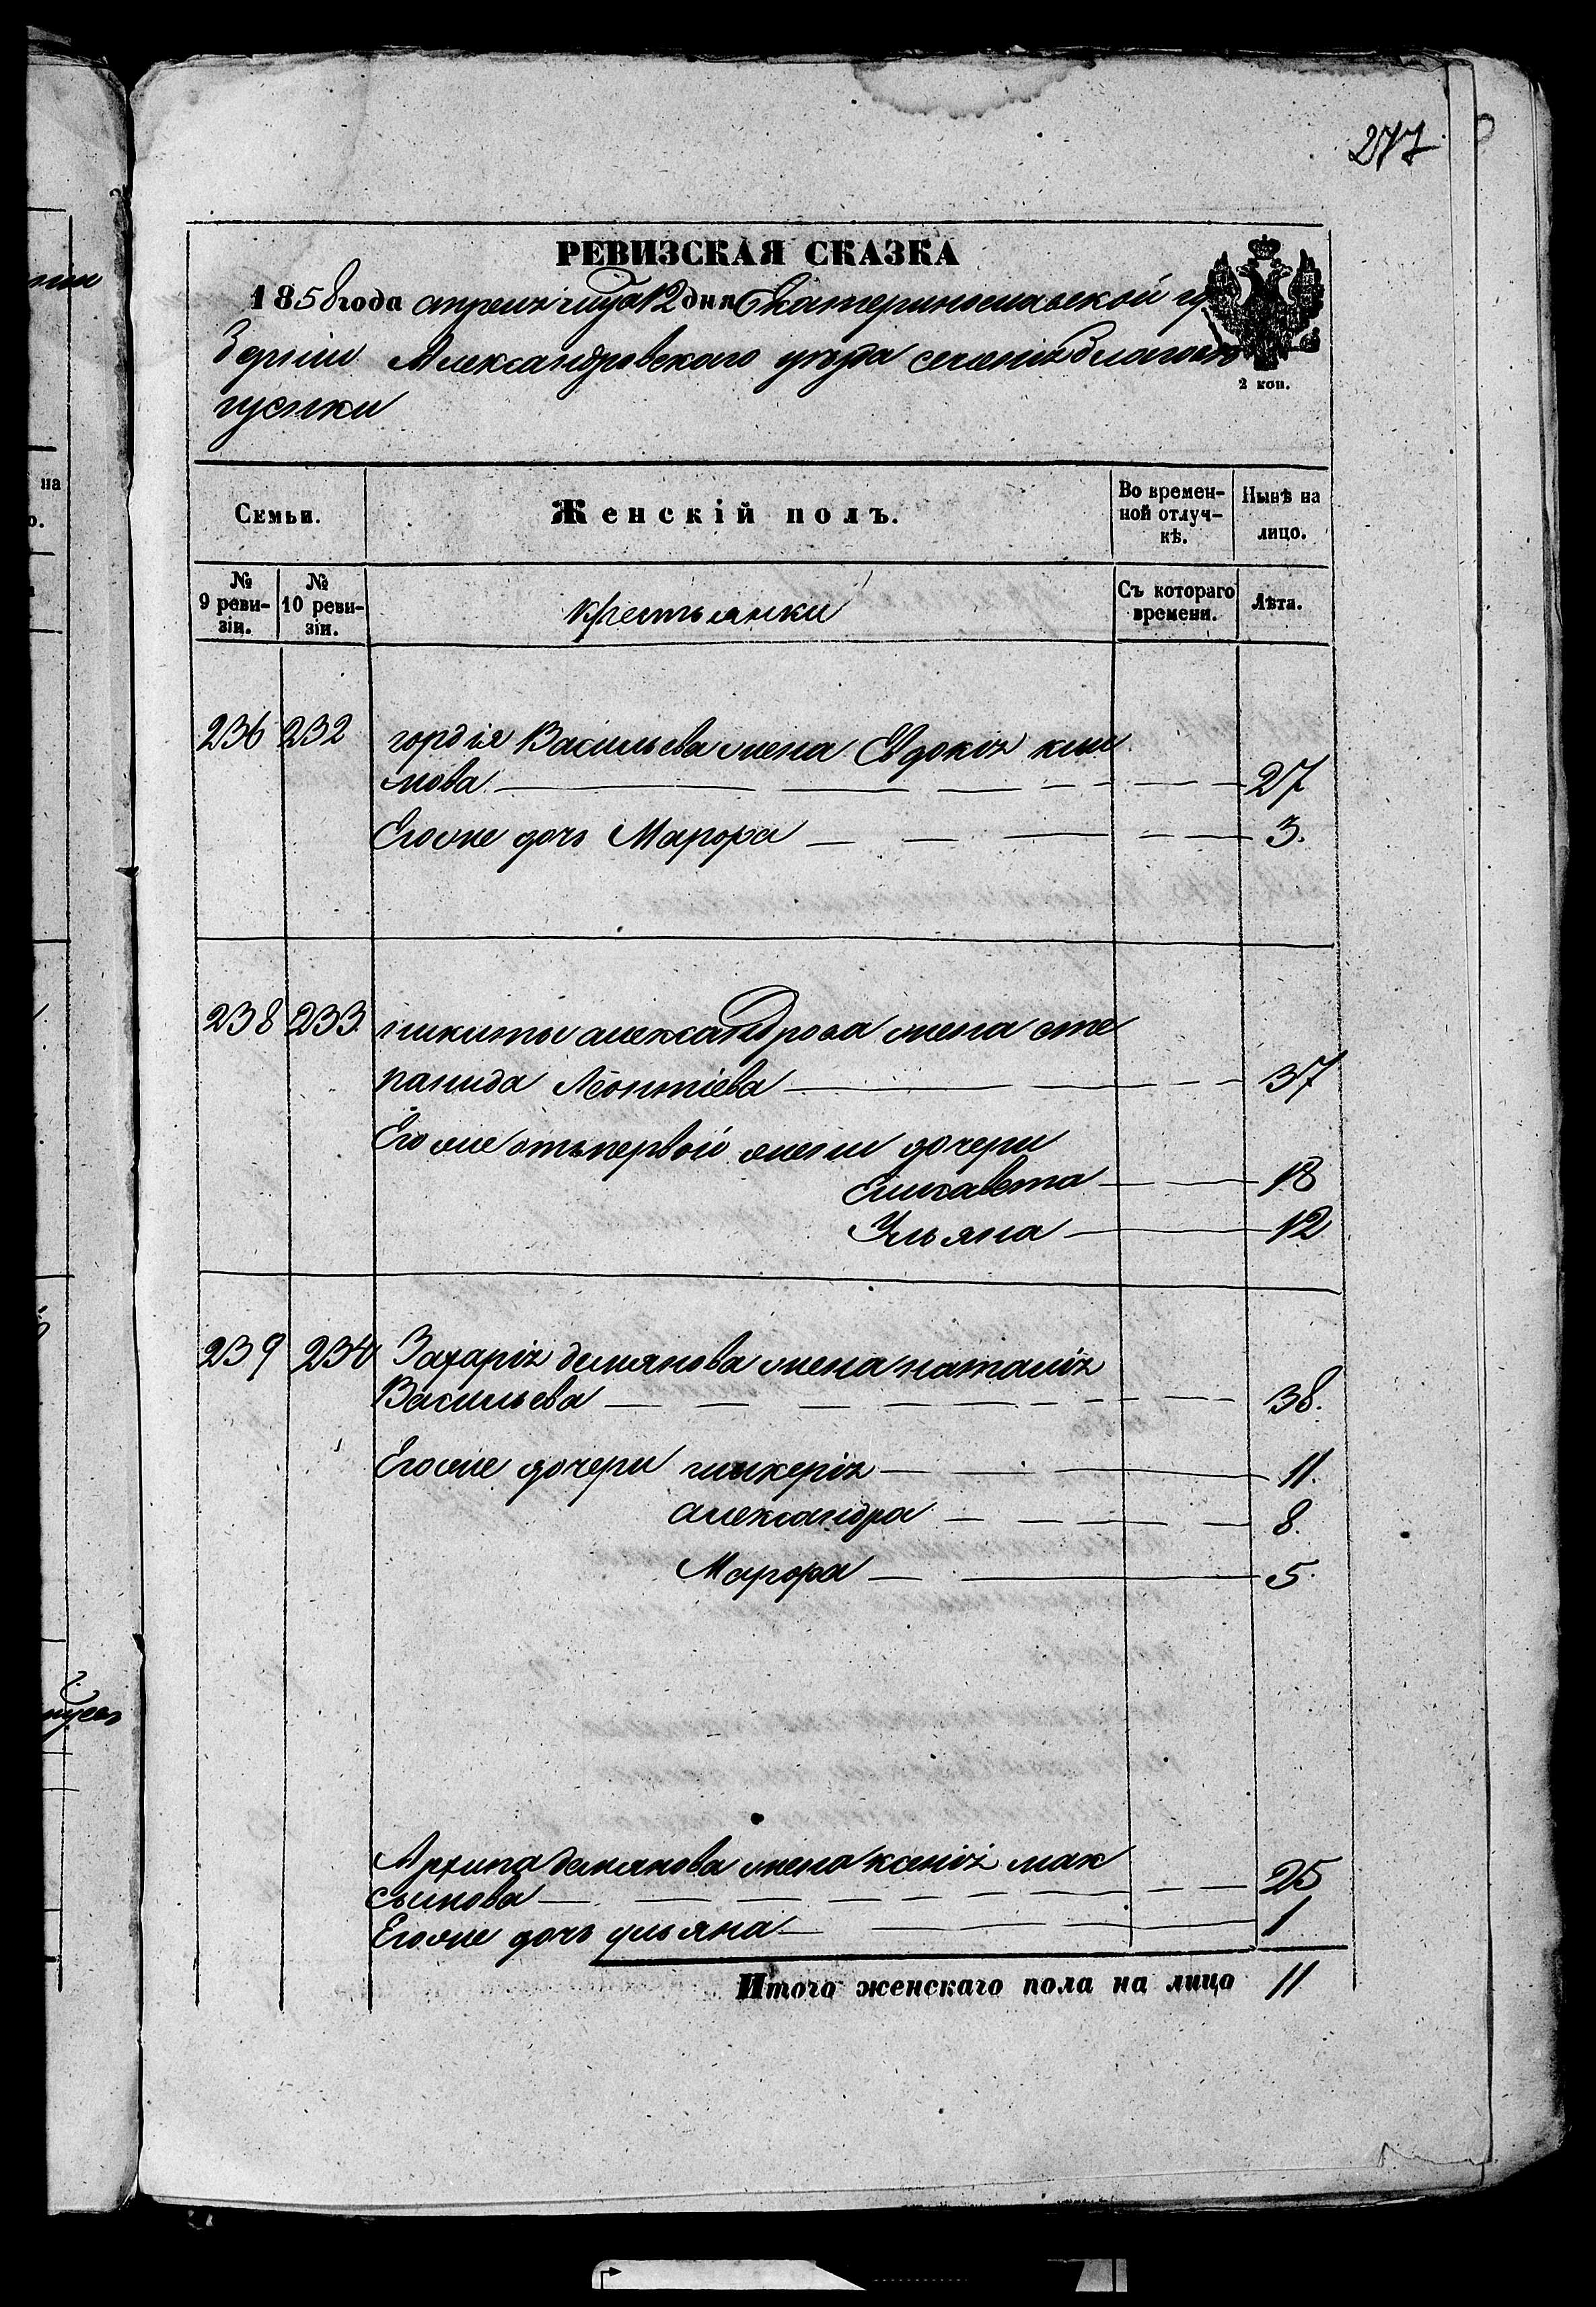 277
РЕВИЗСКАЯ СКАЗКА
1858 года апреля мца 12 дня Екатеринославской гу
берніи Александровского уезда селенія благове
гусѣнки
2 коп.
Семьи. Женскій полъ. Во времен- Нынѣ на
ной отлуч- лицо.
кѣ.
№ № Съ котораго Лѣта.
9 реви- 10 реви- крестьянки времени.
зіи. зіи.
236 232 гордія Васильева жена Евдокія кли
мова 27
Егоже дочь Марфа 3.
238 233. никиты александрова жена сте
панида Леонтіева 37
Егоже отъ первой жены дочери
Елисавета 18
Ульяна 12
239 234 Захарія демянова жена наталія
Васильева 38.
Егоже дочери гликерія 11.
александра 8.
Марфа 5.
Архипа демянова жена ксенія мак
сымова 25
Егоже дочь ульяна 1
Итого женскаго пола на лицо 11
на
о.